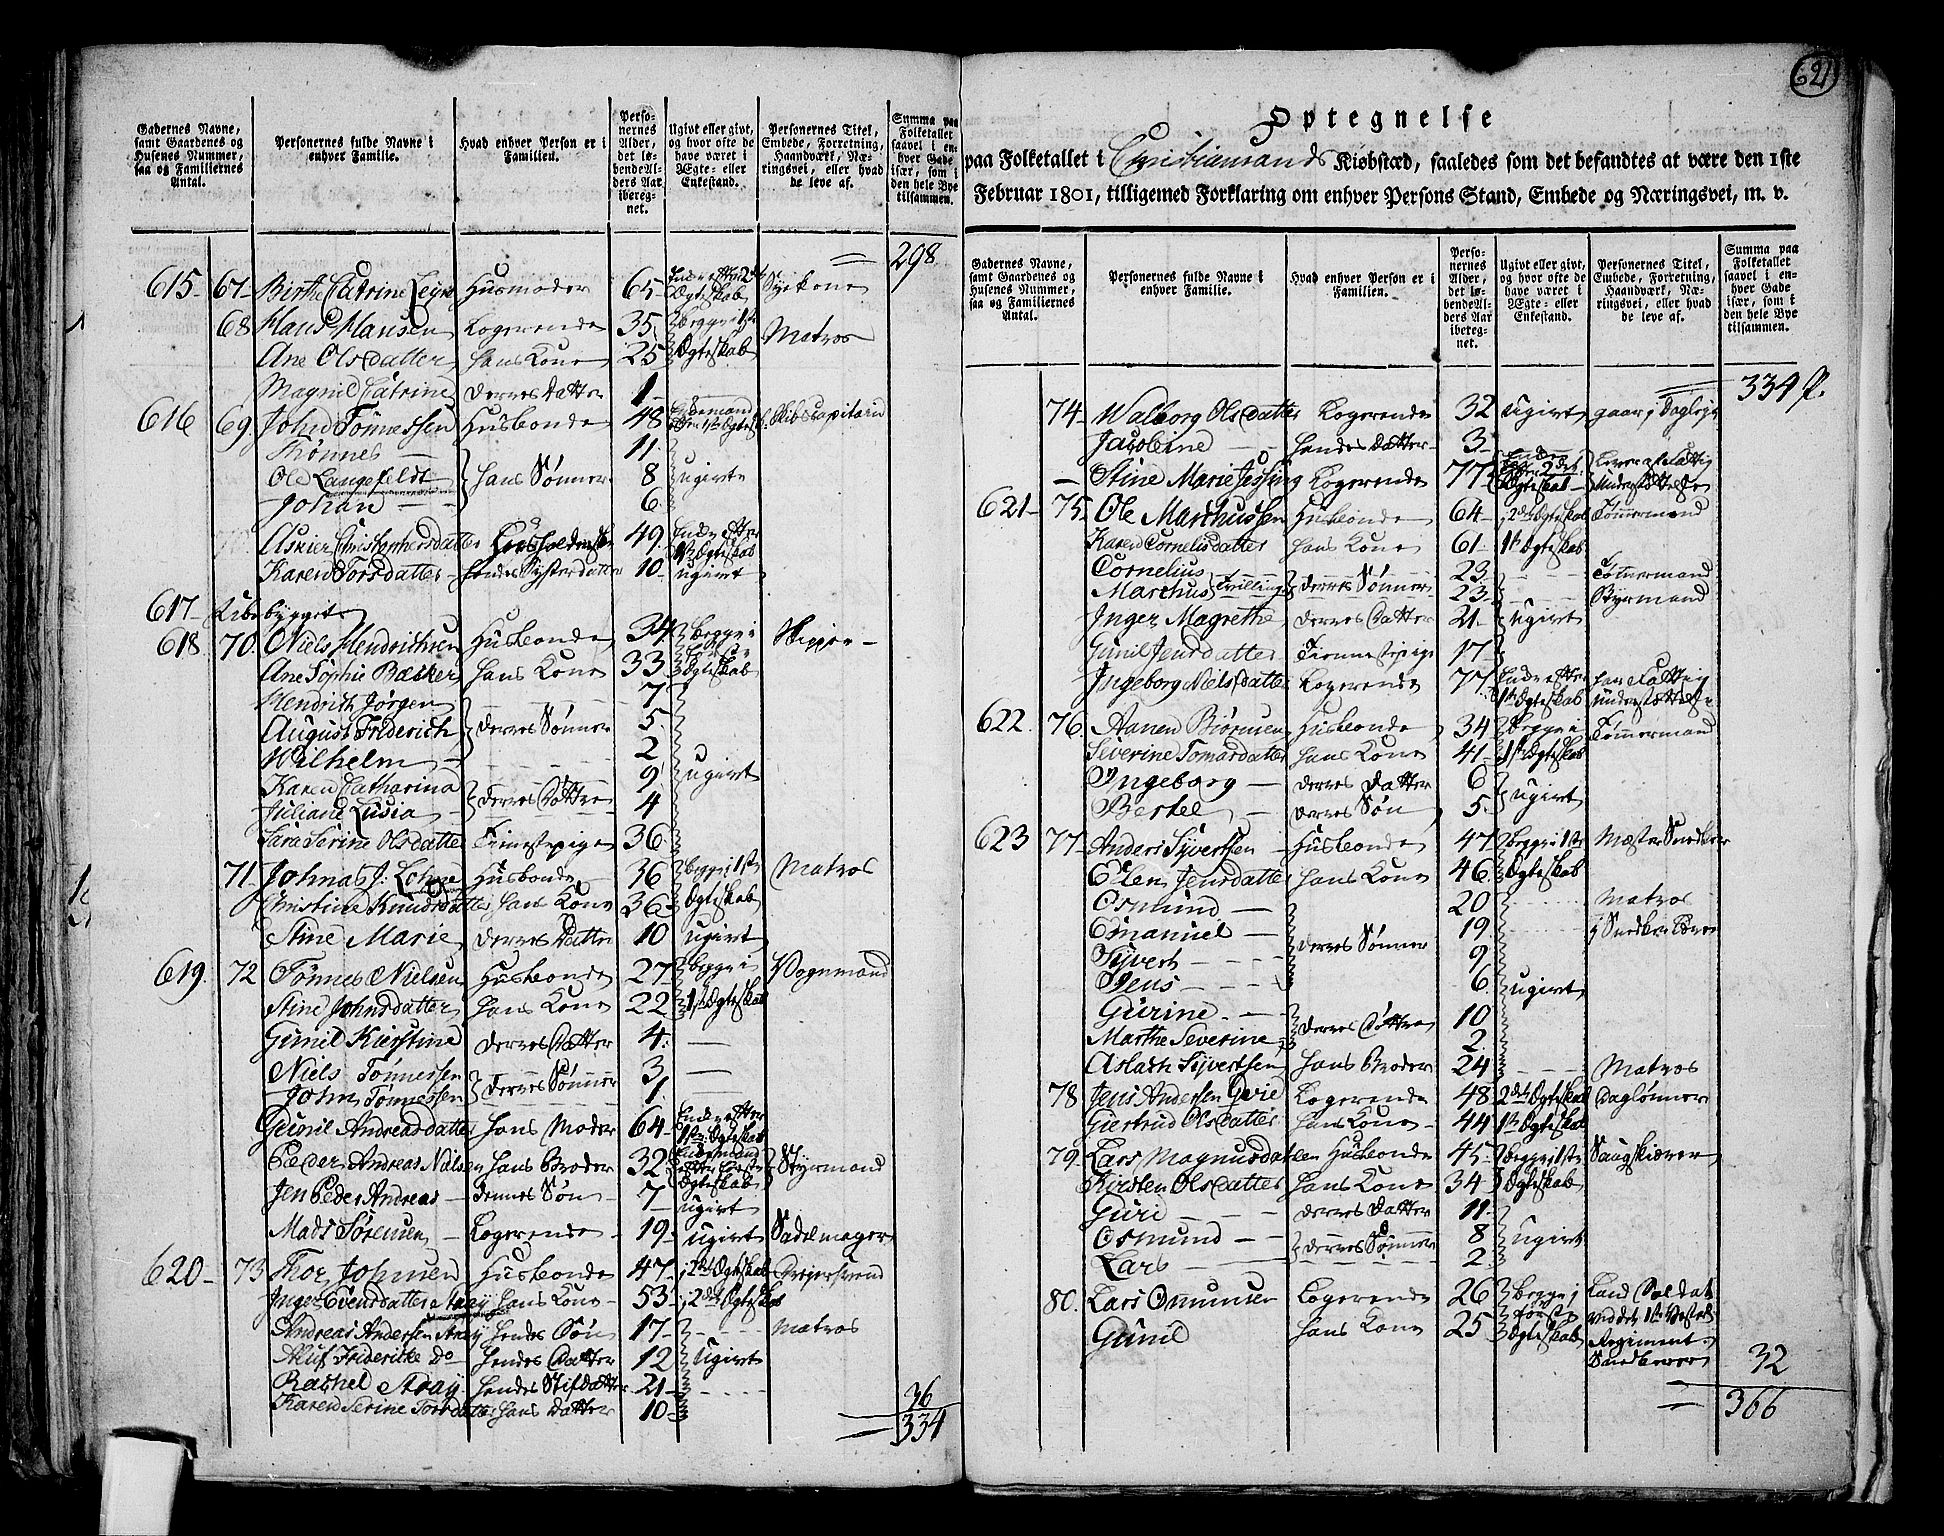 Gadernes Navne, samt Gaardenes og Husenes Nummer, saa og Familiernes Antal.
Personernes fulde Navne i enhver Familie.
Hvad enhver Person er i Familien.
Personernes Alder, det løbende Alders Aar iberegnet.
Ugivt eller givt, og hvor ofte de have været i Ægte- eller Enkestand.
Personernes Titel, Embede, Forretning, Haandværk, Næringsvei, eller hvad de leve af.
Summa paa Folketallet saavel i enhver Gade især, som i den hele Bye tilsammen.
298
615 67 Birthe Catrine Husmoder 65
68 Hans Hansen Logerende 35 begge i 1ste Matros
Ane Olsdatter hans Kone 25 Ægteskab
Magnil Catrine deres Datter 1
616 69 John Tønnessen Husbonde 48 Skibscapitain
Tønnes 11
Ole Langefeldt hans Sønner 8 ugivte
Johan 6
Christophersdatter 49 Enke efter 1ste Ægteskab
Karen Torsdatter hendes Systerdatter 10 ugivt
617 Ubebygget
618 70 Niels Hendrichsen Husbonde 34 begge i
Ane Sophie Bæcker hans Kone 33 Ægteskab
Hendrich Jørgen 7
August Friderich deres Sønner 5
Wilhelm 2
Karen Catharina 9 ugivt
Juliane Lusia deres Døttre 4
Sara Serine Olsdatter Tienestepige 36
71 Johnas J: Lohne Husbonde 36 begge i 1ste Matros
Christine Knudsdatter hans Kone 36 Ægteskab
Stine Marie deres Datter 10 ugivt
619 72 Tønnes Nielsen Husbonde 27 begge i Vognmand
Stine Johnsdatter hans Kone 22 1ste Ægteskab
Gunil Kirstine deres Datter 4
Niels Tønnessen 3
John Tønnessen deres Sønner 1
Gunil Andreasdatter hans Moder 64 Enke efter 1ste Ægteskab
Peder Andreas Nielsen hans Broder 32 Enkemand efter første Ægteskab Styrmand
Jen Peder Andreas dennes Søn 7 ugivt
Mads Sørensen Logerende 19 ugivt Sadelmager
620 73 Thor Johnsen Husbonde 47 i 1ste Ægteskab
Inger Svensdatter Aray hans Kone 53 i 2det Ægteskab
Andreas Andersen Aray hendes Søn 17 Matros
Friderikke Do hendes Datter 12 ugivt
Rachel Aray hendes Stifdatter 21
Karen Serine Torsdatter hans Datter 10
36
334
621
Optegnelse
paa Folketallet i Christiansands Kiøbstæd, saaledes som det befandtes at være den 1ste
Februar 1801, tilligemed Forklaring om enhver Persons Stand, Embede og Næringsvei, m. v.
Gadernes Navne, samt Gaardenes og Husenes Nummer, saa og Familiernes Antal.
Personernes fulde Navne i enhver Familie.
Hvad enhver Person er i Familien.
Personernes Alder, det løbende Alders Aar iberegnet.
Ugivt eller givt, og hvor ofte de have været i Ægte- eller Enkestand.
Personernes Titel, Embede, Forretning, Haandværk, Næringsvei, eller hvad de leve af.
Summa paa Folketallet saavel i enhver Gade især, som i den hele Bye tilsammen.
334
74 Walborg Olsdatter Logerende 32 ugivt gaar i
Jacobine hendes Datter 3
Stine Marie Jessing Logerende 77 Enke efter 2det Ægteskab lever af Fattig Understøttelse
621 75 Ole Marchussen Husbonde 64 i 2det Ægteskab Tømmermand
Karen Cornelisdatter hans Kone 61 1ste Ægteskab
Cornelius 23 Tømmermand
Marchus Tvillinger deres Sønner 23 Styrmand
Inger Magrethe deres Datter 21 ugivt
Gunil Jensdatter Tienestepige 17
Ingeborg Nielsdatter Logerende 77 Enke efter 1ste Ægteskab har Fattig understøttelse
622 76 Aanen Biørnsen Husbonde 34 begge i Tømmermand
Siverine Tomasdatter hans Kone 41 1ste Ægteskab
Ingeborg deres Datter 6
Bertel deres Søn 5 ugivt
623 77 Anders Syvertsen Husbonde 47 begge i 1ste Mæster Snedker
Elen Jensdatter hans Kone 46 Ægteskab
Osmund 20 Matros
Emanuel 19 i Snedker Lære
Syvert deres Sønner 9
Jens 6 ugivt
Gurine 10
Marthe Severine deres Døttre 2
Aslach Syvertsen hans Broder 24 Matros
78 Jens Andersen Logerende 48 2det Ægteskab Daglønner
Giertrud Olsdatter hans Kone 44 1ste Ægteskab
79 Lars Magnusdalen Husbonde 45 begge i 1ste Saugskiærer
Kirsten Olsdatter hans Kone 34 Ægteskab
Guri deres Datter 11
Osmund deres Sønner 8 ugivt
Lars 2
80 Lars Osmunsen Logerende 26 begge i Land Soldat
Gunil hans Kone 25 første Ægteskab ved det 1ste Regiment
32
366